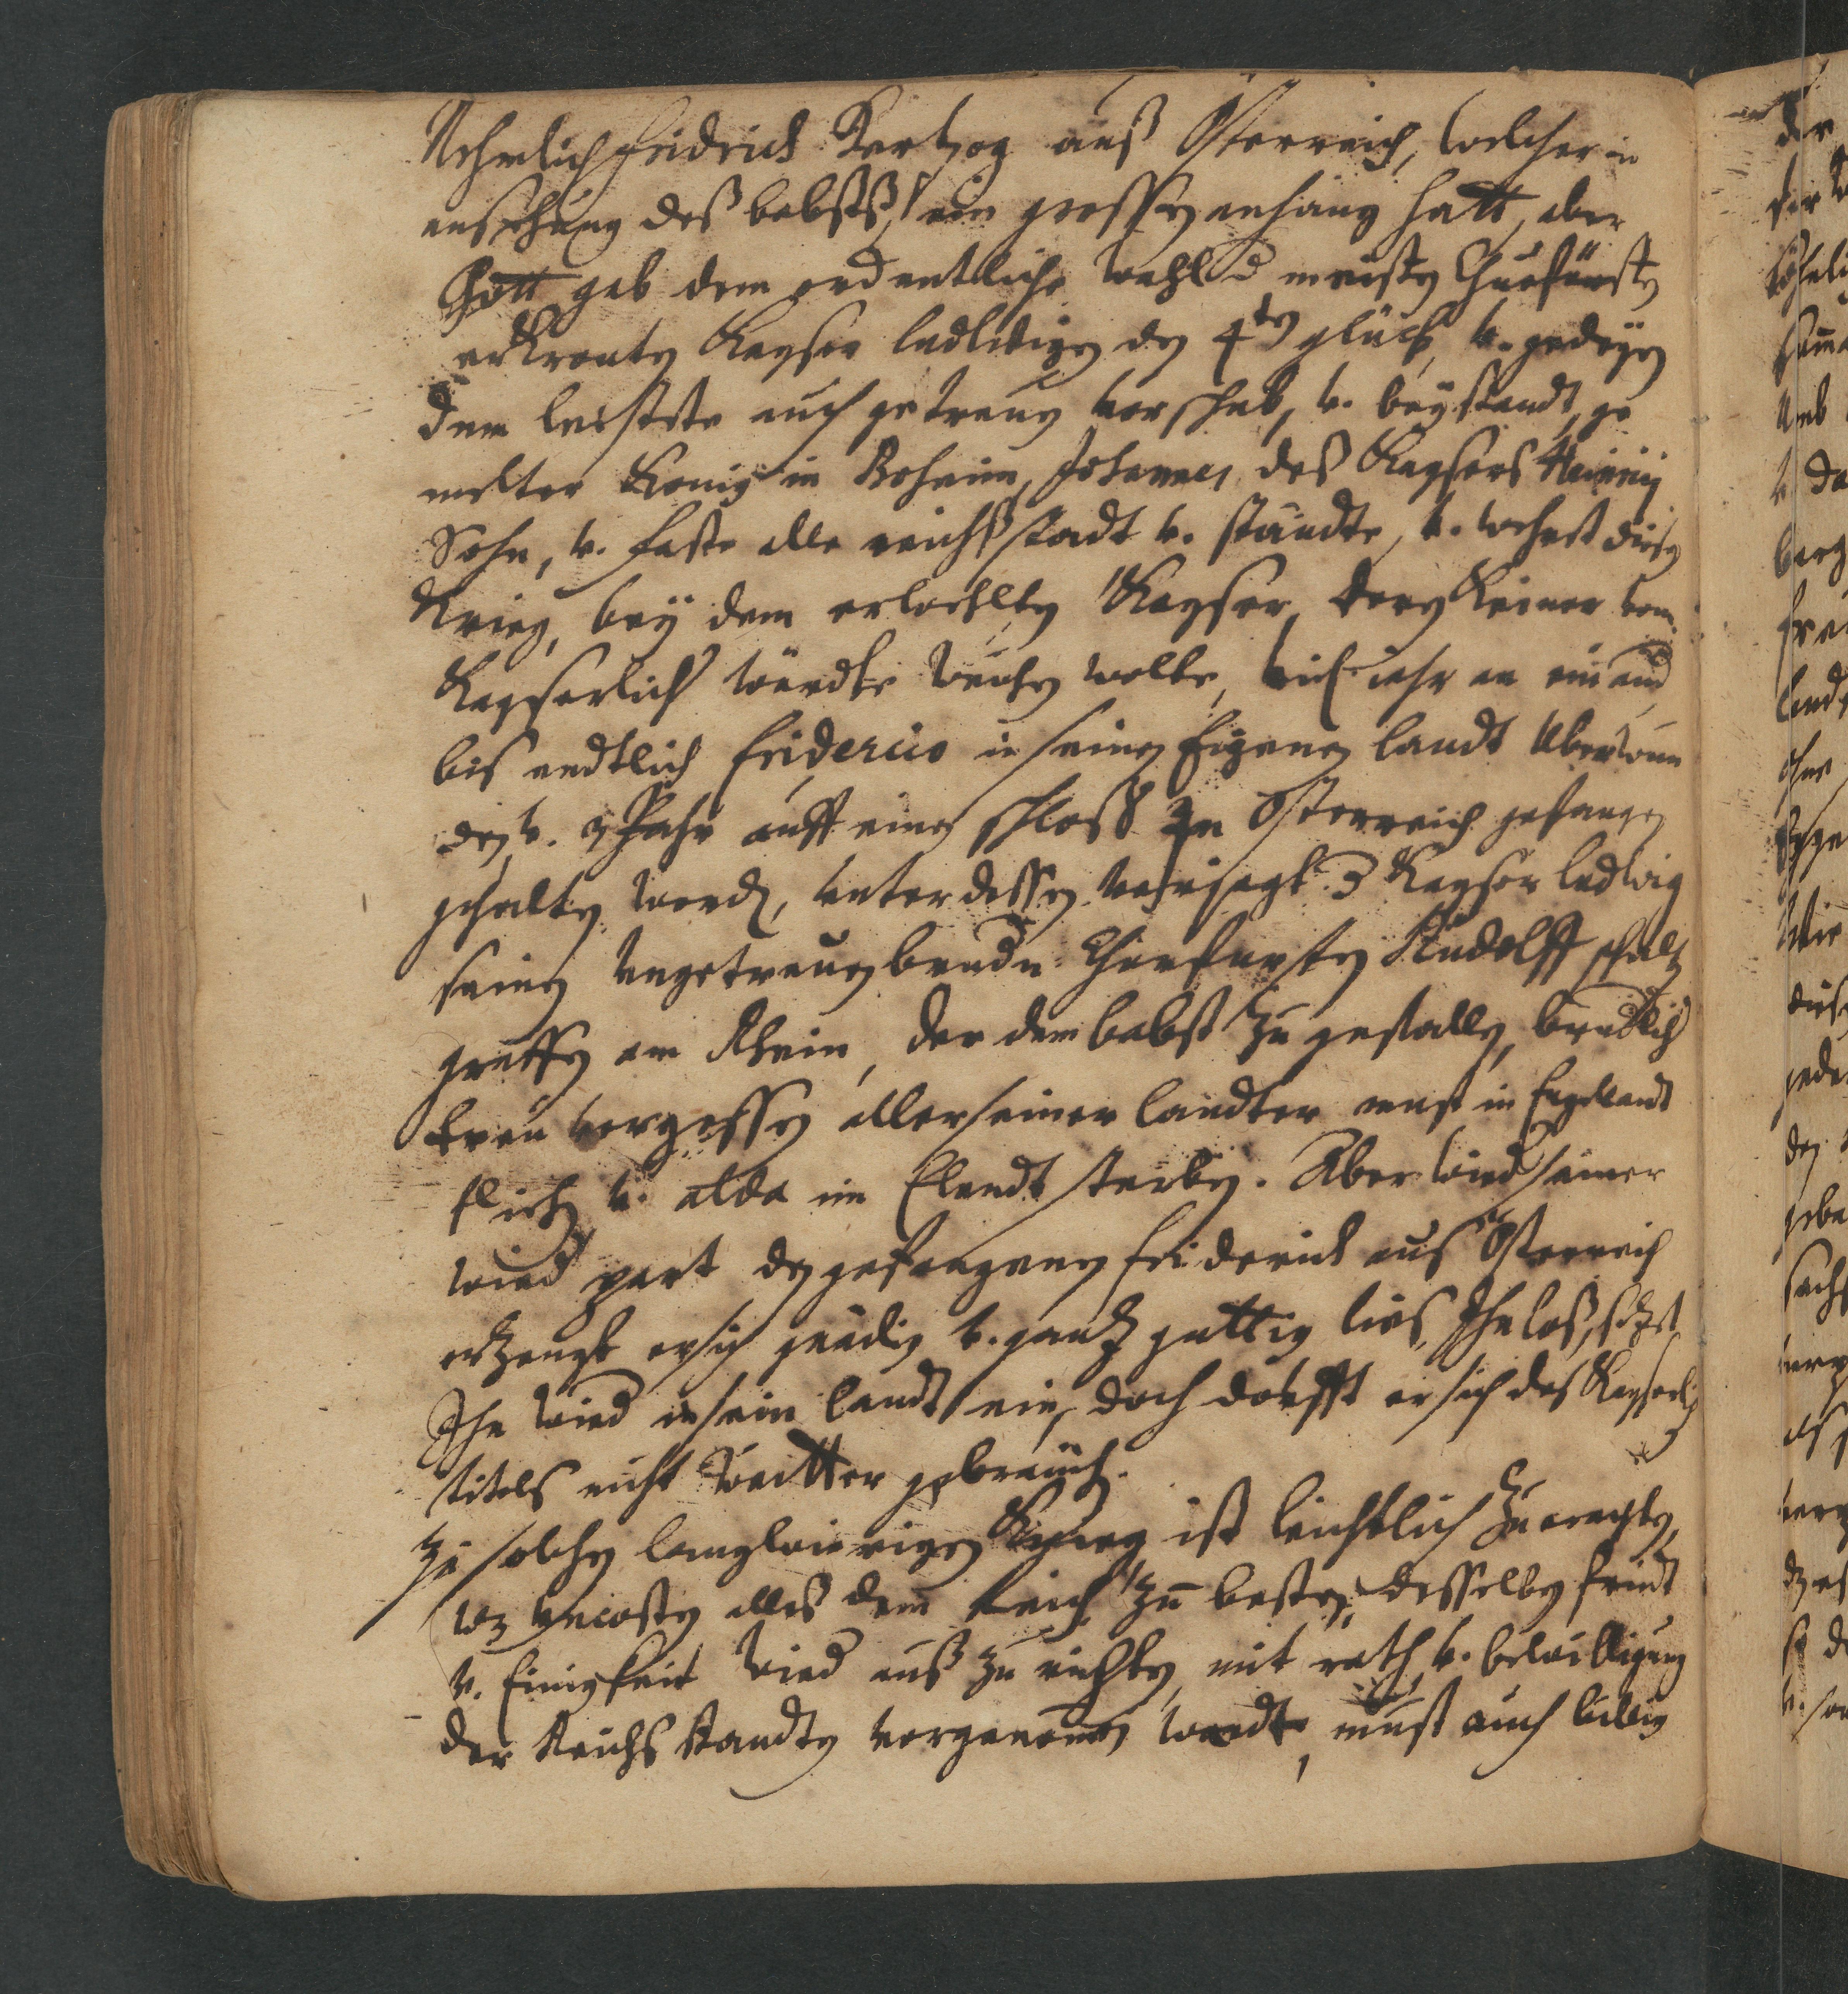 Nehmlich fridrich Hertzog auß Osterreich, welcher in
ansehung deß babsts, ein grossen anhang hatt, aber
Gott gab dem ordentliche wahl d meisten Churfürsten
erkronten Kayser ludwigen den 4ten glück, v. gedeyen
dem leistete auch getreuen vorschub, v. beystandt, ge
melter Konig in Boheim, Johannes, des Kaysers Heinrici
Sohn, v. faste alle reichsstadt v. stände, v. wehrt diesen
Krieg, bey dem erwehlten Kayser, deren Keiner vom
Kayserlich würdte weichen wolte, viel iahr an einand
bis endtlich friderico in seinen Eigenen landt uberwun
den v. 3 Jahr auff einen schloß in Osterreich gefangen
gehalten word, unterdessen veriagt Kayser ludwig
seinen ungetreuen brudr Churfursten Rudolff pfaltz
graffen am Rhein, der dem babst zu gefallen, brudlich
treu vergessen aller seiner landter must in Engellandt
fliehen v. alda im Elendt sterben. Aber wied seiner
wied part den gefangenen friderich aus Osterreich
ertzeugt er sich gnädig v. gantz guttig lies Ihn loß, setzt
Ihn wied in sein landt ein, doch dorfft er sich des Kayserlich
titels nicht weitter gebrauch.
Zu solchen langwierigen Krieg ist leichtlich zu erachten,
wz uncosten alles dem Reich zum besten, desselben fridt
v. Einigkeit wied auß zu richten, mit rath, v. bewilligung
der Reichs standten vorgenommen wordte, must auch ludwig